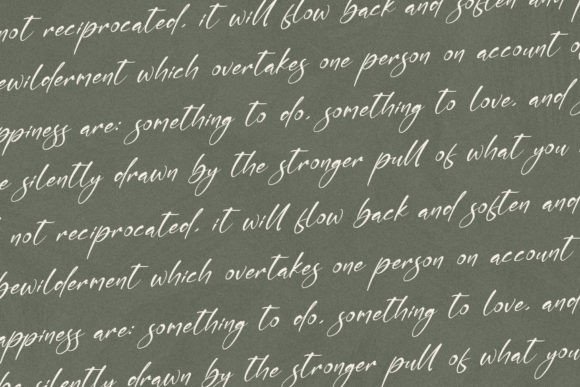 not reciprocated, it will flow back and soften and
bewilderment which overtakes one person on account
appiness are: something to do, something to love, and
silently drawn by the stronger pull of what you
not reciprocated, it will flow back and soften and
bewilderment which overtakes one person on account
appiness are: something to do, something to love, and
silently drawn by the stronger pull of what you